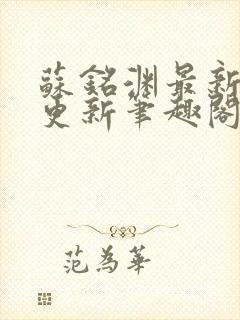 蘇銘淵最新
更新筆趣閣
范為華